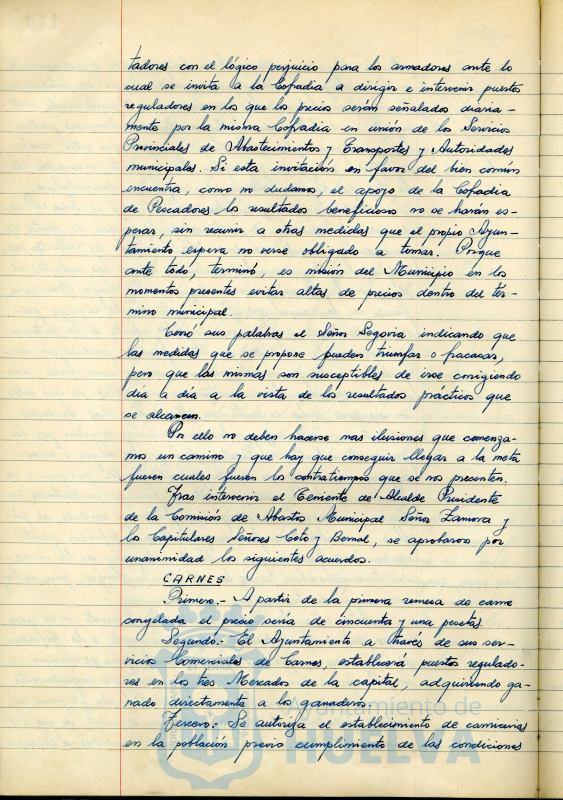 tadores con el lógico perjuicio para los armadores ante lo
cual se invita a la Cofradia a dirigir e intervenir puestos
reguladores en los que los precios serán señalados diaria-
mente por la misma Cofradia en unión de los Servicios
Provinciales de Abastecimientos y Transportes y Autoridades
municipales. Si esta invitación en favor del bien común
encuentra, como no dudamos, el apoyo de la Cofradia
de Pescadores los resultados beneficiosos no se harán es-
perar, sin recurrir a otras medidas que el propio Ayun-
tamiento espera no verse obligado a tomar. Porque
ante todo, terminó, es misión del Municipio en los
momentos presentes evitar altas de precios dentro del tér-
mino municipal.
Cerró sus palabras el Señor Segovia indicando que
las medidas que se propone pueden triunfar o fracasar,
pero que las mismas son susceptibles de irse corrigiendo
dia a dia a la vista de los resultados prácticos que
se alcancen.
Por ello no deben hacerse mas ilusiones que comenza-
mos un camino y que hay que conseguir llegar a la meta
fueren cuales fueren los contratiempos que se nos presenten.
Tras intervenir el Teniente de Alcalde Presidente
de la Comisión de Abastos Municipal Señor Zamora y
los Capitulares Señores Coto y Bernal, se aprobaron por
unanimidad los siguientes acuerdos.
CARNES
Primero.- A partir de la primera remesa de carne
congelada el precio sería de cincuenta y una pesetas.
Segundo.- El Ayuntamiento a través de sus ser-
vicios Comerciales de Carnes, establecerá puestos regulado-
res en los tres Mercados de la capital, adquiriendo ga-
nado directamente a los ganaderos.
Tercero.- Se autoriza el establecimiento de carnicerias
en la población previo cumplimiento de las condiciones
Ayuntamiento de
HUELVA